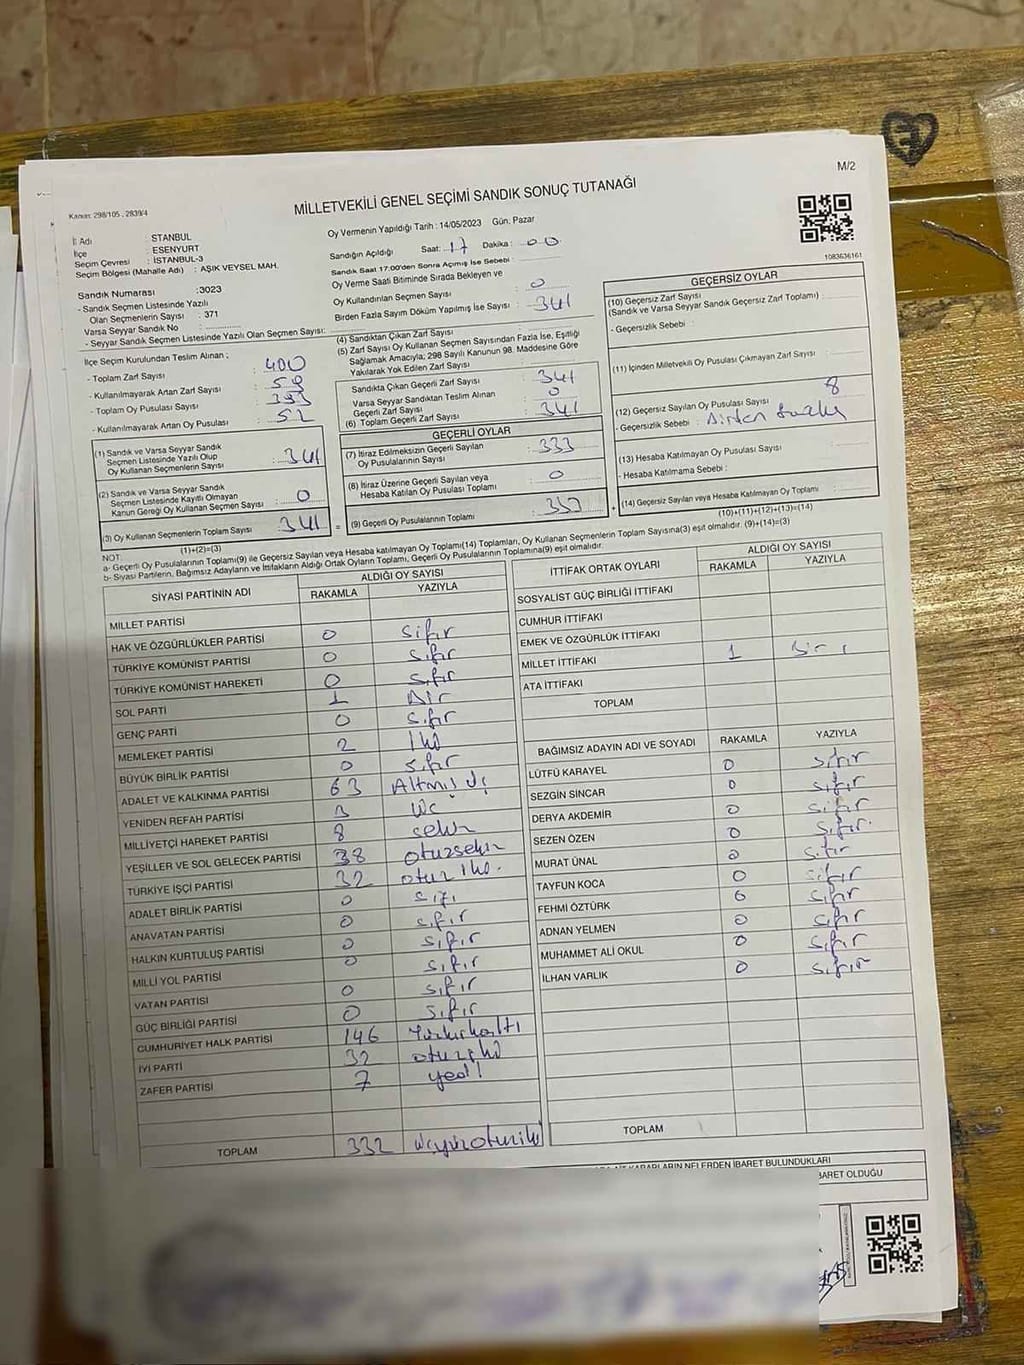 M/2
Kanun: 298/105 , 2839/4
MİLLETVEKİLİ GENEL SEÇİMİ SANDIK SONUÇ TUTANAĞI
İl Adı : STANBUL
İlçe : ESENYURT
Seçim Çevresi : İSTANBUL-3
Seçim Bölgesi (Mahalle Adı) : AŞIK VEYSEL MAH.
Sandık Numarası : 3023
- Sandık Seçmen Listesinde Yazılı
Olan Seçmenlerin Sayısı : 371
Varsa Seyyar Sandık No :
- Seyyar Sandık Seçmen Listesinde Yazılı Olan Seçmen Sayısı:
Oy Vermenin Yapıldığı Tarih : 14/05/2023 Gün: Pazar
Sandığın Açıldığı Saat: 17 Dakika : 00
Sandık Saat 17:00'den Sonra Açımış İse Sebebi :
Oy Verme Saati Bitiminde Sırada Bekleyen ve
Oy Kullandırılan Seçmen Sayısı : 0
Birden Fazla Sayım Döküm Yapılmış İse Sayısı :
1083636161
İlçe Seçim Kurulundan Teslim Alınan ;
- Toplam Zarf Sayısı : 400
- Kullanılmayarak Artan Zarf Sayısı : 59
- Toplam Oy Pusulası Sayısı : 393
- Kullanılmayarak Artan Oy Pusulası : 52
(1) Sandık ve Varsa Seyyar Sandık
Seçmen Listesinde Yazılı Olup
Oy Kullanan Seçmenlerin Sayısı : 341
(2) Sandık ve Varsa Seyyar Sandık
Seçmen Listesinde Kayıtlı Olmayan
Kanun Gereği Oy Kullanan Seçmen Sayısı : 0
(3) Oy Kullanan Seçmenlerin Toplam Sayısı : 341
(1)+(2)=(3)
(4) Sandıktan Çıkan Zarf Sayısı : 341
(5) Zarf Sayısı Oy Kullanan Seçmen Sayısından Fazla İse, Eşitliği
Sağlamak Amacıyla; 298 Sayılı Kanunun 98. Maddesine Göre
Yakılarak Yok Edilen Zarf Sayısı :
Sandıkta Çıkan Geçerli Zarf Sayısı : 341
Varsa Seyyar Sandıktan Teslim Alınan
Geçerli Zarf Sayısı : 0
(6) Toplam Geçerli Zarf Sayısı : 341
GEÇERLİ OYLAR
(7) İtiraz Edilmeksizin Geçerli Sayılan
Oy Pusulalarının Sayısı : 333
(8) İtiraz Üzerine Geçerli Sayılan veya
Hesaba Katılan Oy Pusulası Toplamı : 0
(9) Geçerli Oy Pusulalarının Toplamı : 333
GEÇERSİZ OYLAR
(10) Geçersiz Zarf Sayısı
(Sandık ve Varsa Seyyar Sandık Geçersiz Zarf Toplamı) :
- Geçersizlik Sebebi :
(11) İçinden Milletvekili Oy Pusulası Çıkmayan Zarf Sayısı :
(12) Geçersiz Sayılan Oy Pusulası Sayısı : 8
- Geçersizlik Sebebi : Birden
(13) Hesaba Katılmayan Oy Pusulası Sayısı :
- Hesaba Katılmama Sebebi :
(14) Geçersiz Sayılan veya Hesaba Katılmayan Oy Toplamı :
(10)+(11)+(12)+(13)=(14)
NOT:
a- Geçerli Oy Pusulalarının Toplamı(9) ile Geçersiz Sayılan veya Hesaba katılmayan Oy Toplamı(14) Toplamları, Oy Kullanan Seçmenlerin Toplam Sayısına(3) eşit olmalıdır. (9)+(14)=(3)
b- Siyasi Partilerin, Bağımsız Adayların ve İttifakların Aldığı Ortak Oyların Toplamı, Geçerli Oy Pusulalarının Toplamına(9) eşit olmalıdır.
SİYASİ PARTİNİN ADI ALDIĞI OY SAYISI
RAKAMLA YAZIYLA
MİLLET PARTİSİ
HAK VE ÖZGÜRLÜKLER PARTİSİ 0 Sıfır
TÜRKİYE KOMÜNİST PARTİSİ 0 Sıfır
TÜRKİYE KOMÜNİST HAREKETİ 0 Sıfır
SOL PARTİ 1 Bir
GENÇ PARTİ 0 Sıfır
MEMLEKET PARTİSİ 2 İki
BÜYÜK BİRLİK PARTİSİ 0 Sıfır
ADALET VE KALKINMA PARTİSİ 63 Altmış üç
YENİDEN REFAH PARTİSİ 3 üç
MİLLİYETÇİ HAREKET PARTİSİ 8 sekiz
YEŞİLLER VE SOL GELECEK PARTİSİ 38 otuzsekiz
TÜRKİYE İŞÇİ PARTİSİ 32 otuz iki.
ADALET BİRLİK PARTİSİ 0
ANAVATAN PARTİSİ 0 sıfır
HALKIN KURTULUŞ PARTİSİ 0 sıfır
MİLLİ YOL PARTİSİ 0 sıfır
VATAN PARTİSİ 0 sıfır
GÜÇ BİRLİĞİ PARTİSİ 0 sıfır
CUMHURİYET HALK PARTİSİ 146 Yüzkırkaltı
İYİ PARTİ 32 otuziki
ZAFER PARTİSİ 7 yedi
TOPLAM 332 üçyüzotuziki
İTTİFAK ORTAK OYLARI ALDIĞI OY SAYISI
RAKAMLA YAZIYLA
SOSYALİST GÜÇ BİRLİĞİ İTTİFAKI
CUMHUR İTTİFAKI
EMEK VE ÖZGÜRLÜK İTTİFAKI
MİLLET İTTİFAKI 1 Bir
ATA İTTİFAKI
TOPLAM
BAĞIMSIZ ADAYIN ADI VE SOYADI RAKAMLA YAZIYLA
LÜTFÜ KARAYEL 0 sıfır
SEZGİN SİNCAR 0 sıfır
DERYA AKDEMİR 0 sıfır
SEZEN ÖZEN 0 sıfır
MURAT ÜNAL 0 sıfır
TAYFUN KOCA 0 sıfır
FEHMİ ÖZTÜRK 0 sıfır
ADNAN YELMEN 0 sıfır
MUHAMMET ALİ OKUL 0 sıfır
İLHAN VARLIK 0 sıfır
TOPLAM
KARARLARIN NELERDEN İBARET BULUNDUKLARI
BARET OLDUĞU